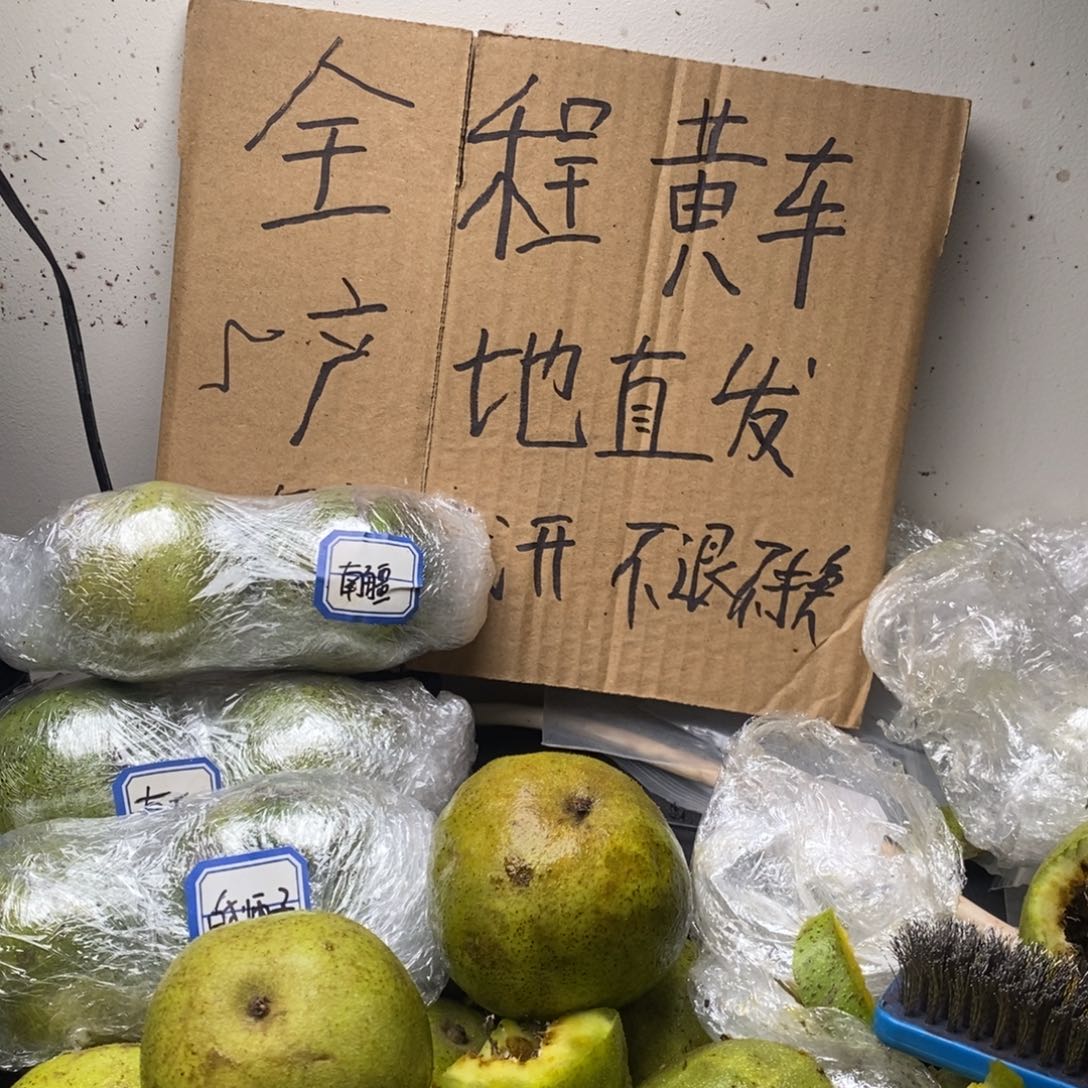 全程黄车
产地直发
开 不退不换
南疆